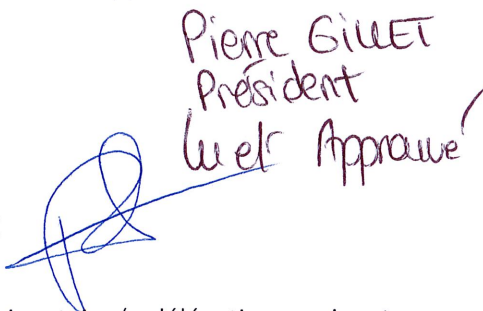 Pierre GILLET
Président
Lu et Approuvé